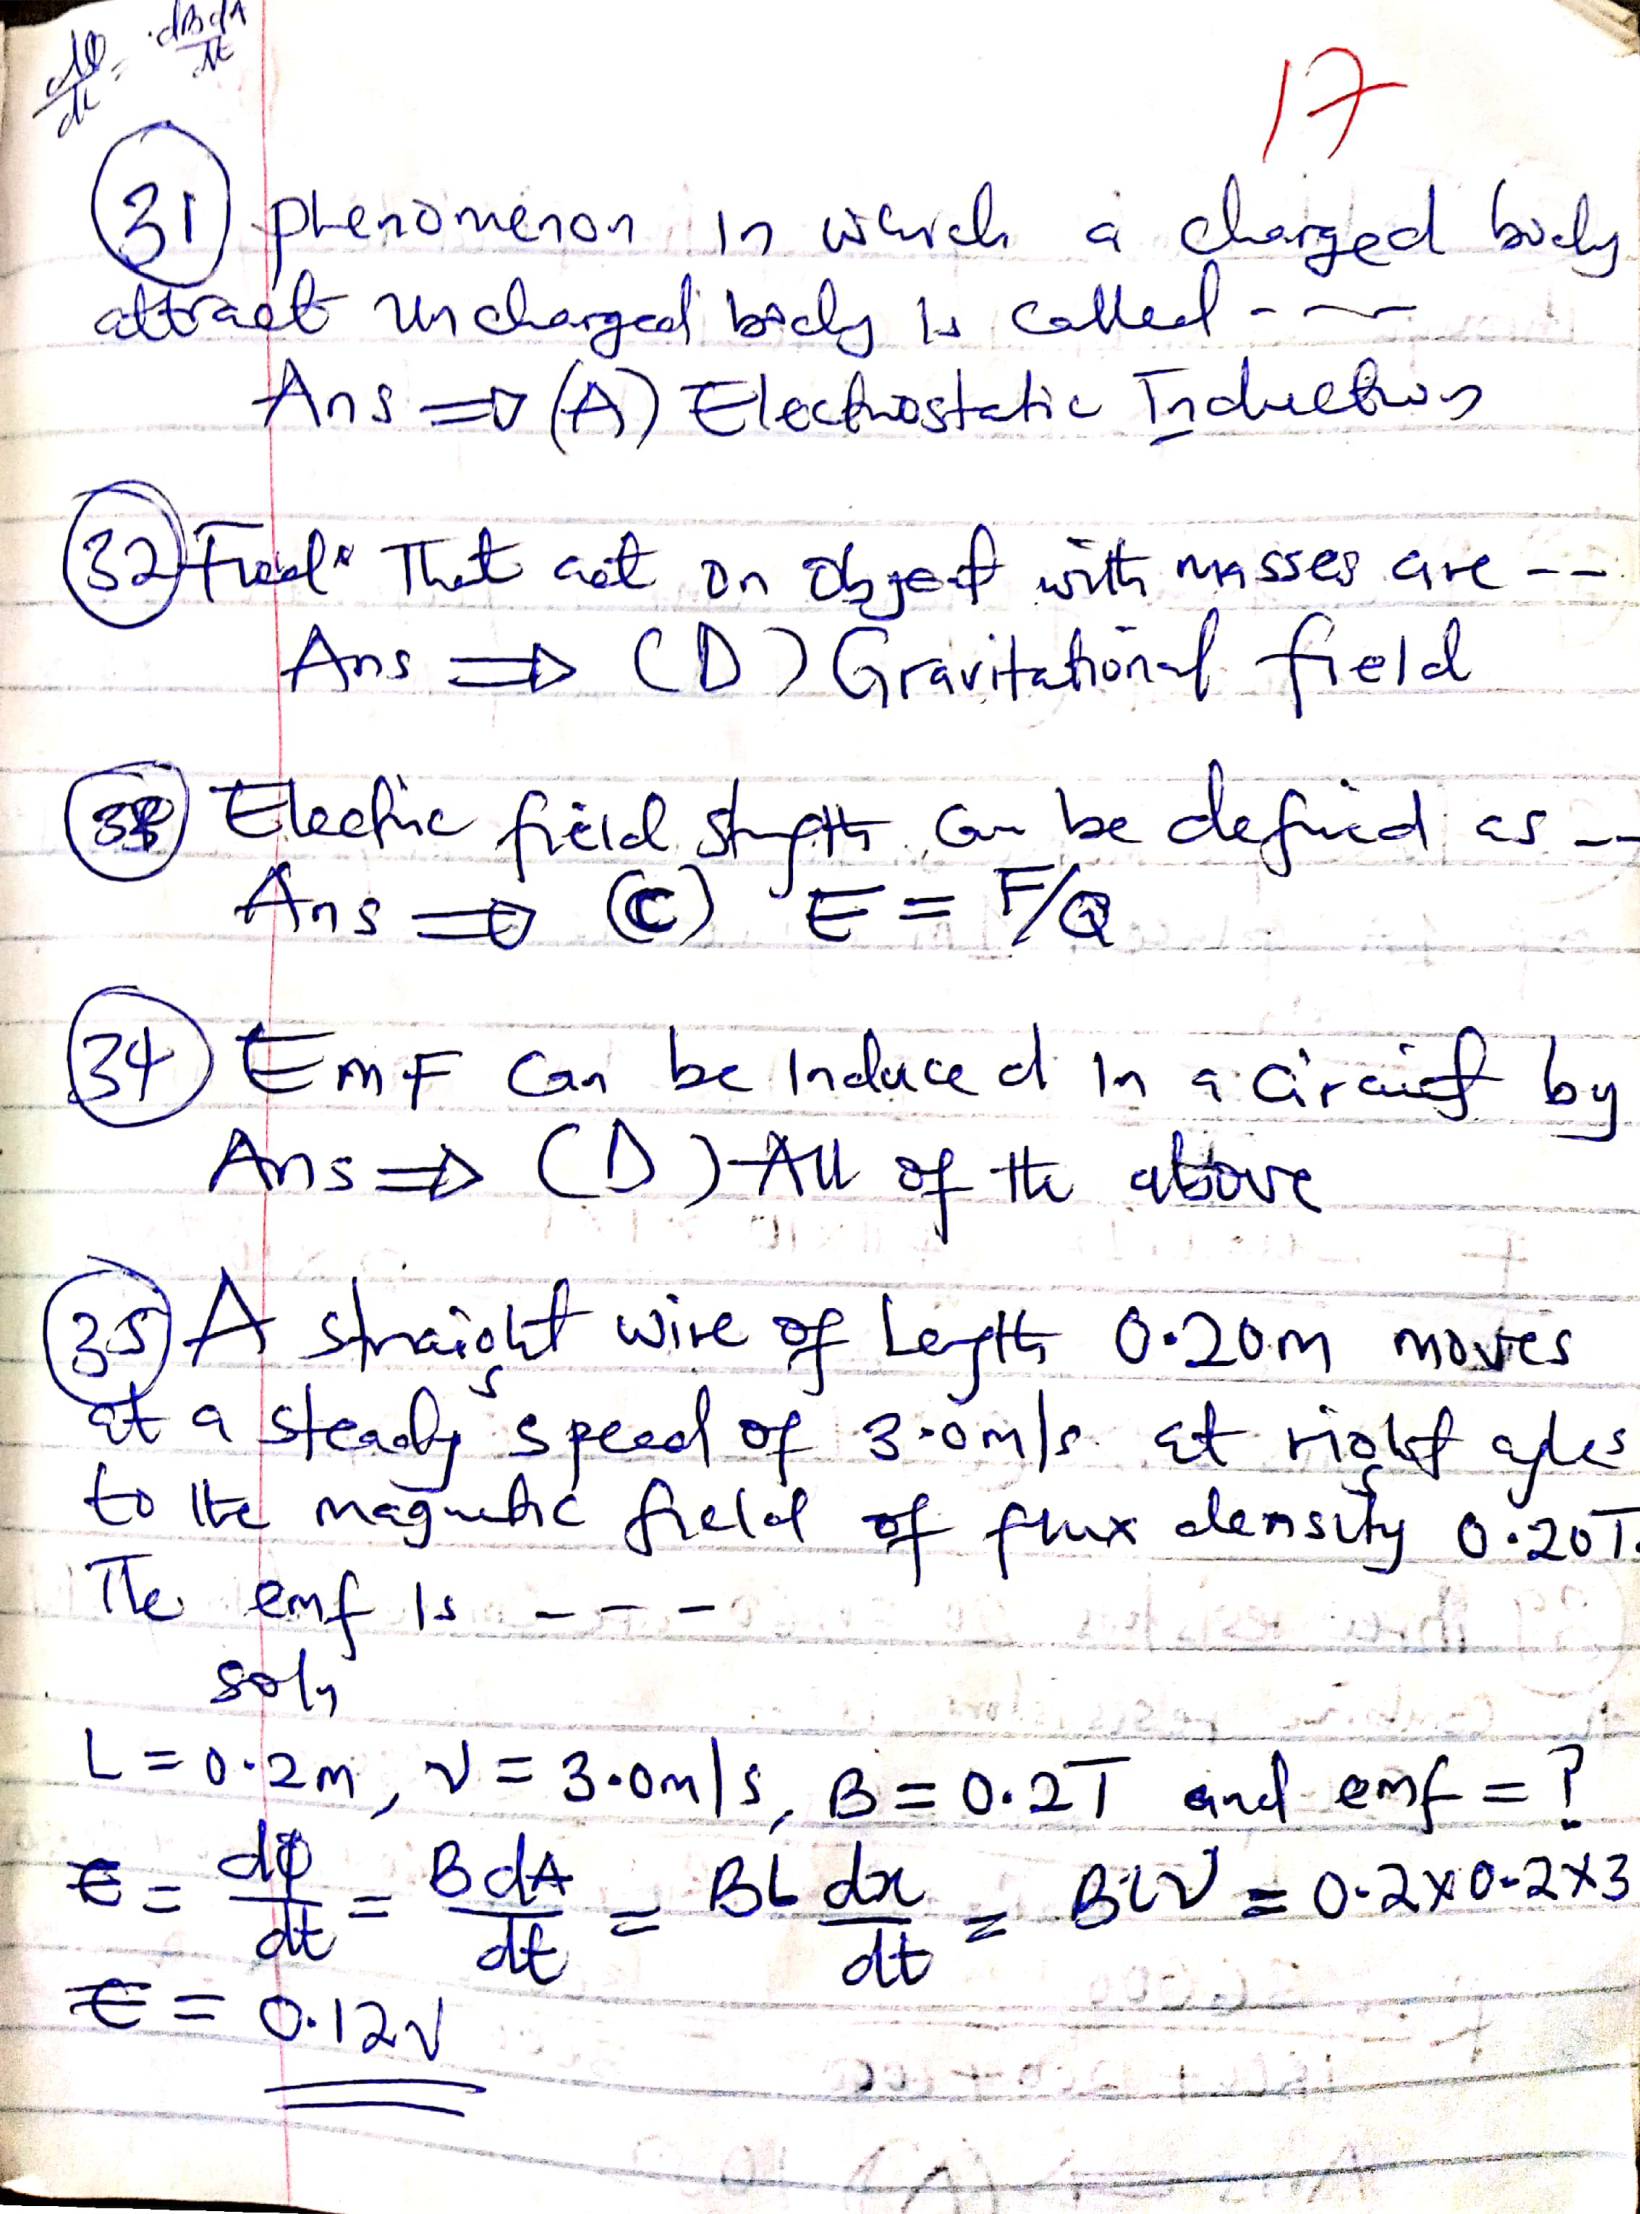 dφ/dt = dBdA/dt
17
(31) phenomenon in which a charged body
attract uncharged body is called ---
Ans ⇒ (A) Electrostatic Induction
(32) Field's That act on object with masses are --
Ans ⇒ (D) Gravitational field
(33) Electric field strength can be defined as --
Ans ⇒ (C) E = F/Q
(34) EMF can be Induced in a circuit by
Ans ⇒ (D) All of the above
(35) A straight wire of Length 0.20m moves
at a steady speed of 3.0m/s at right agles
to the magnetic field of flux density 0.20T.
The emf is ----
soln
L = 0.2m, v = 3.0m/s, B = 0.2T and emf = ?
E = dφ/dt = BdA/dt = BL dx/dt = BLV = 0.2x0.2x3
E = 0.12V